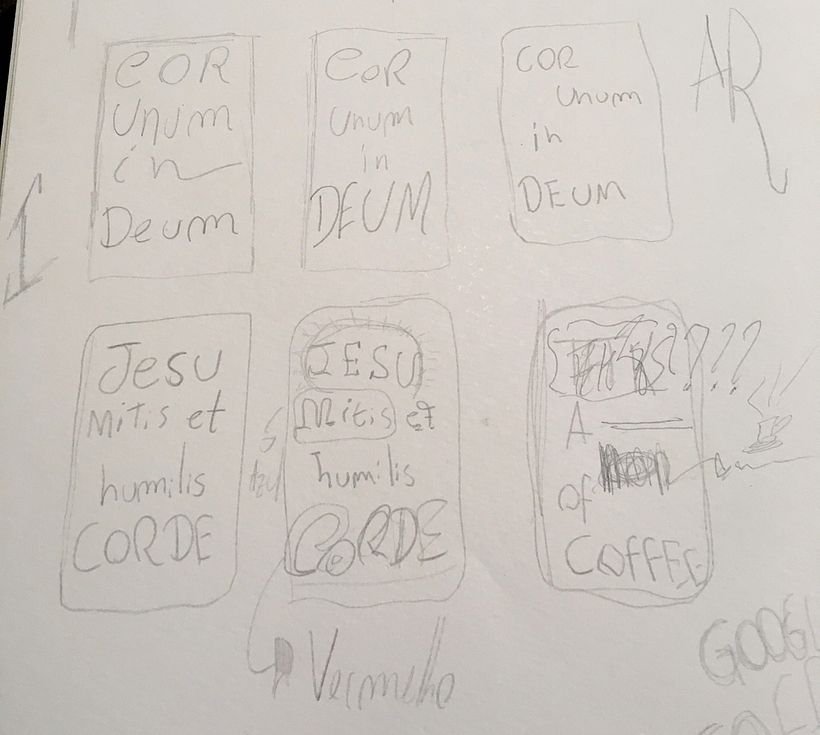 COR
Unum
in
Deum
COR
Unum
in
DEUM
COR
Unum
in
DEUM
AR
I
Jesu
Mitis et
humilis
CORDE
JESU
Mitis et
humilis
CORDE
Vermelho
???
A
of
COFFEE